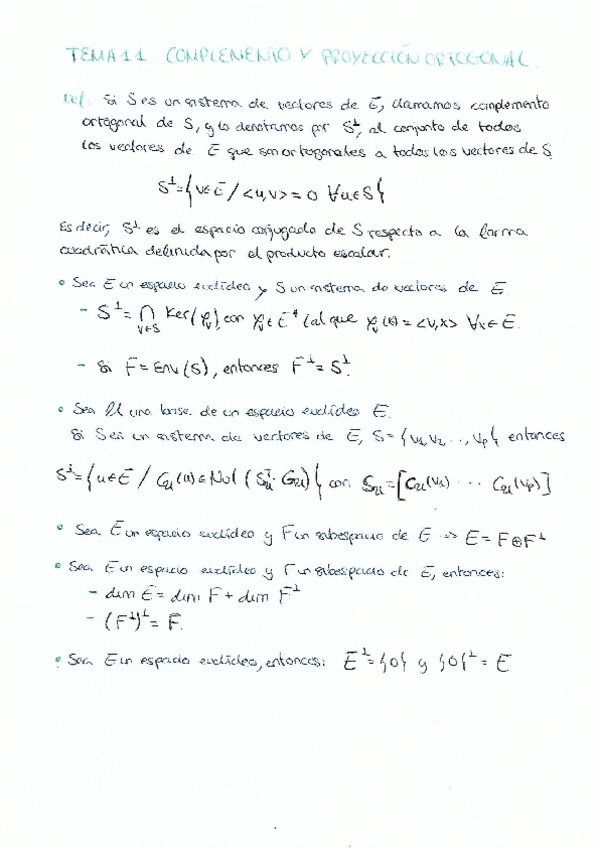 TEMA 11 COMPLEMENTO Y PROYECCIÓN ORTOGONAL.
Def. Si S es un sistema de vectores de E, llamamos complemento
ortogonal de S, y lo denotamos por S⊥, al conjunto de todos
los vectores de E que son ortogonales a todos los vectores de S.
S⊥={v∈E/<u,v>=0 ∀u∈S}
Es decir, S⊥ es el espacio conjugado de S respecto a la forma
cuadrática definida por el producto escalar.
• Sea E un espacio euclídeo y S un sistema de vectores de E.
- S⊥= ⋂v∈S Ker(φv), con φv∈E* tal que φv(x)=<v,x> ∀x∈E.
- Si F=Env(S), entonces F⊥=S⊥.
• Sea U una base de un espacio euclídeo E.
Si S es un sistema de vectores de E, S={v1,v2,..,vp} entonces
S⊥={u∈E/Cu(u)∈Nul(SuT·Gu)} con Su=[Cu(v1) ... Cu(vp)]
• Sea E un espacio euclídeo y F un subespacio de E => E=F⊕F⊥
• Sea E un espacio euclídeo y F un subespacio de E, entonces:
- dim E = dim F + dim F⊥
- (F⊥)⊥=F.
• Sea E un espacio euclídeo, entonces: E⊥={0} y {0}⊥=E